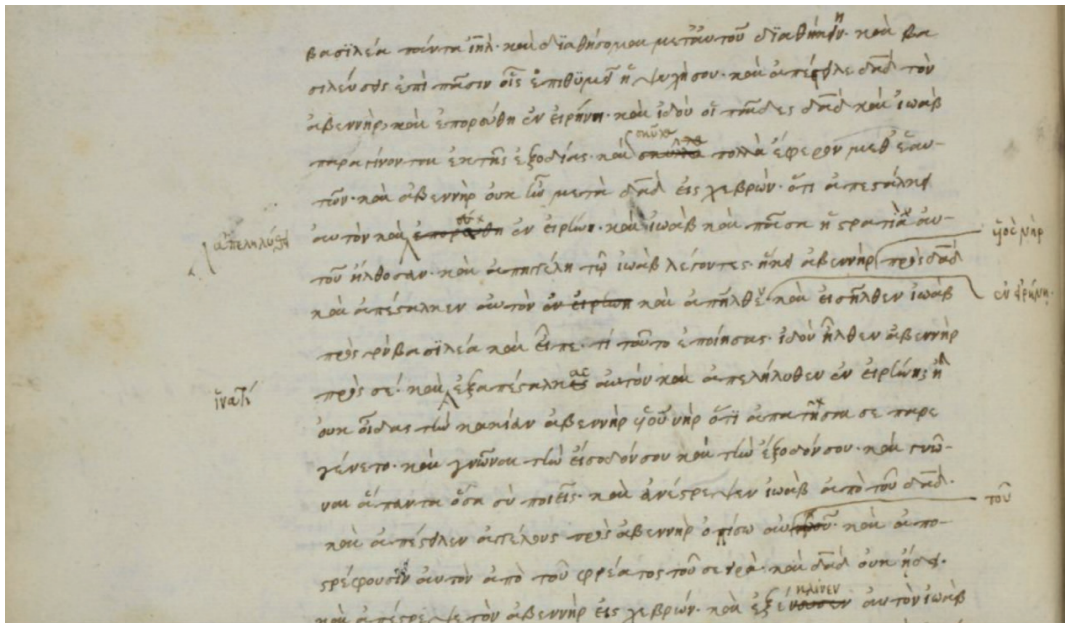 βασϊλέα πάντα ιηλ· καὶ διαθήσομαι μετ' αυτοῦ διαθήκην· καὶ βα
σιλεύσεις επὶ πᾶσιν οἷς ἐπιθυμεῖ ἡ ψυχήσου· καὶ απέστειλε δαδ τὸν
ἀβεννὴρ, καὶ ἐπορεύθη ἐν εἰρήνη· καὶ ἰδοὺ οἱ παῖδες δαδ καὶ ἰωὰβ
παρεγίνοντο ἐκ τῆς ἐξοδίας· καὶ σκῦλα πολλὰ ἔφερον μεθ' ἑαυ-
τῶν· καὶ ἀβεννὴρ οὐκ ἦν μετὰ δαδ εἰς χεβρών· ὅτι ἀπεστάλκει
αυτὸν καὶ ἐν εἰρήνη· καὶ ἰωὰβ καὶ πᾶσα ἡ στρατιὰ αυ-
ἀπεληλύθει
τοῦ ἤλθοσαν· καὶ ἀπηγγέλη τῷ ἰωὰβ λέγοντες· ἥκει ἀβεννὴρ πρὸς δαδ
υἱὸς νὴρ
καὶ ἀπέσταλκεν αυτὸν ἐν εἰρήνη καὶ ἀπῆλθε· καὶ εἰσῆλθεν ἰωὰβ
ἐν εἰρήνη·
πρὸς τὸν βασϊλέα καὶ εἶπε· τί τοῦτο ἐποίησας· ἰδοὺ ἦλθεν ἀβεννὴρ
πρὸς σέ· καὶ ἐξαπέσταλκας αυτὸν καὶ ἀπελήλυθεν ἐν εἰρήνη· ἢ
ἵνατί
οὐκ οἶδας τὴν κακίαν ἀβεννὴρ υἱοῦ νὴρ ὅτι ἀπατῆσαι σε παρε
γένετο· καὶ γνῶναι τὴν εἴσοδόν σου καὶ τὴν ἔξοδόν σου· καὶ γνῶ-
ναι ἅπαντα ὅσα σὺ ποιεῖς· καὶ ἀνέστρεψεν ἰωὰβ ἀπὸ τοῦ δαδ·
καὶ ἀπέστειλεν ἀγγέλους πρὸς ἀβεννὴρ ὀπίσω αυτοῦ· καὶ ἀπο-
τοῦ
στρέφουσιν αυτὸν ἀπὸ τοῦ φρέατος τοῦ σειρὰ· καὶ δαδ οὐκ ᾔδει·
καὶ ἀπέστρεψε τὸν ἀβεννὴρ εἰς χεβρών· καὶ ἐξέκλινεν αυτὸν ἰωὰβ